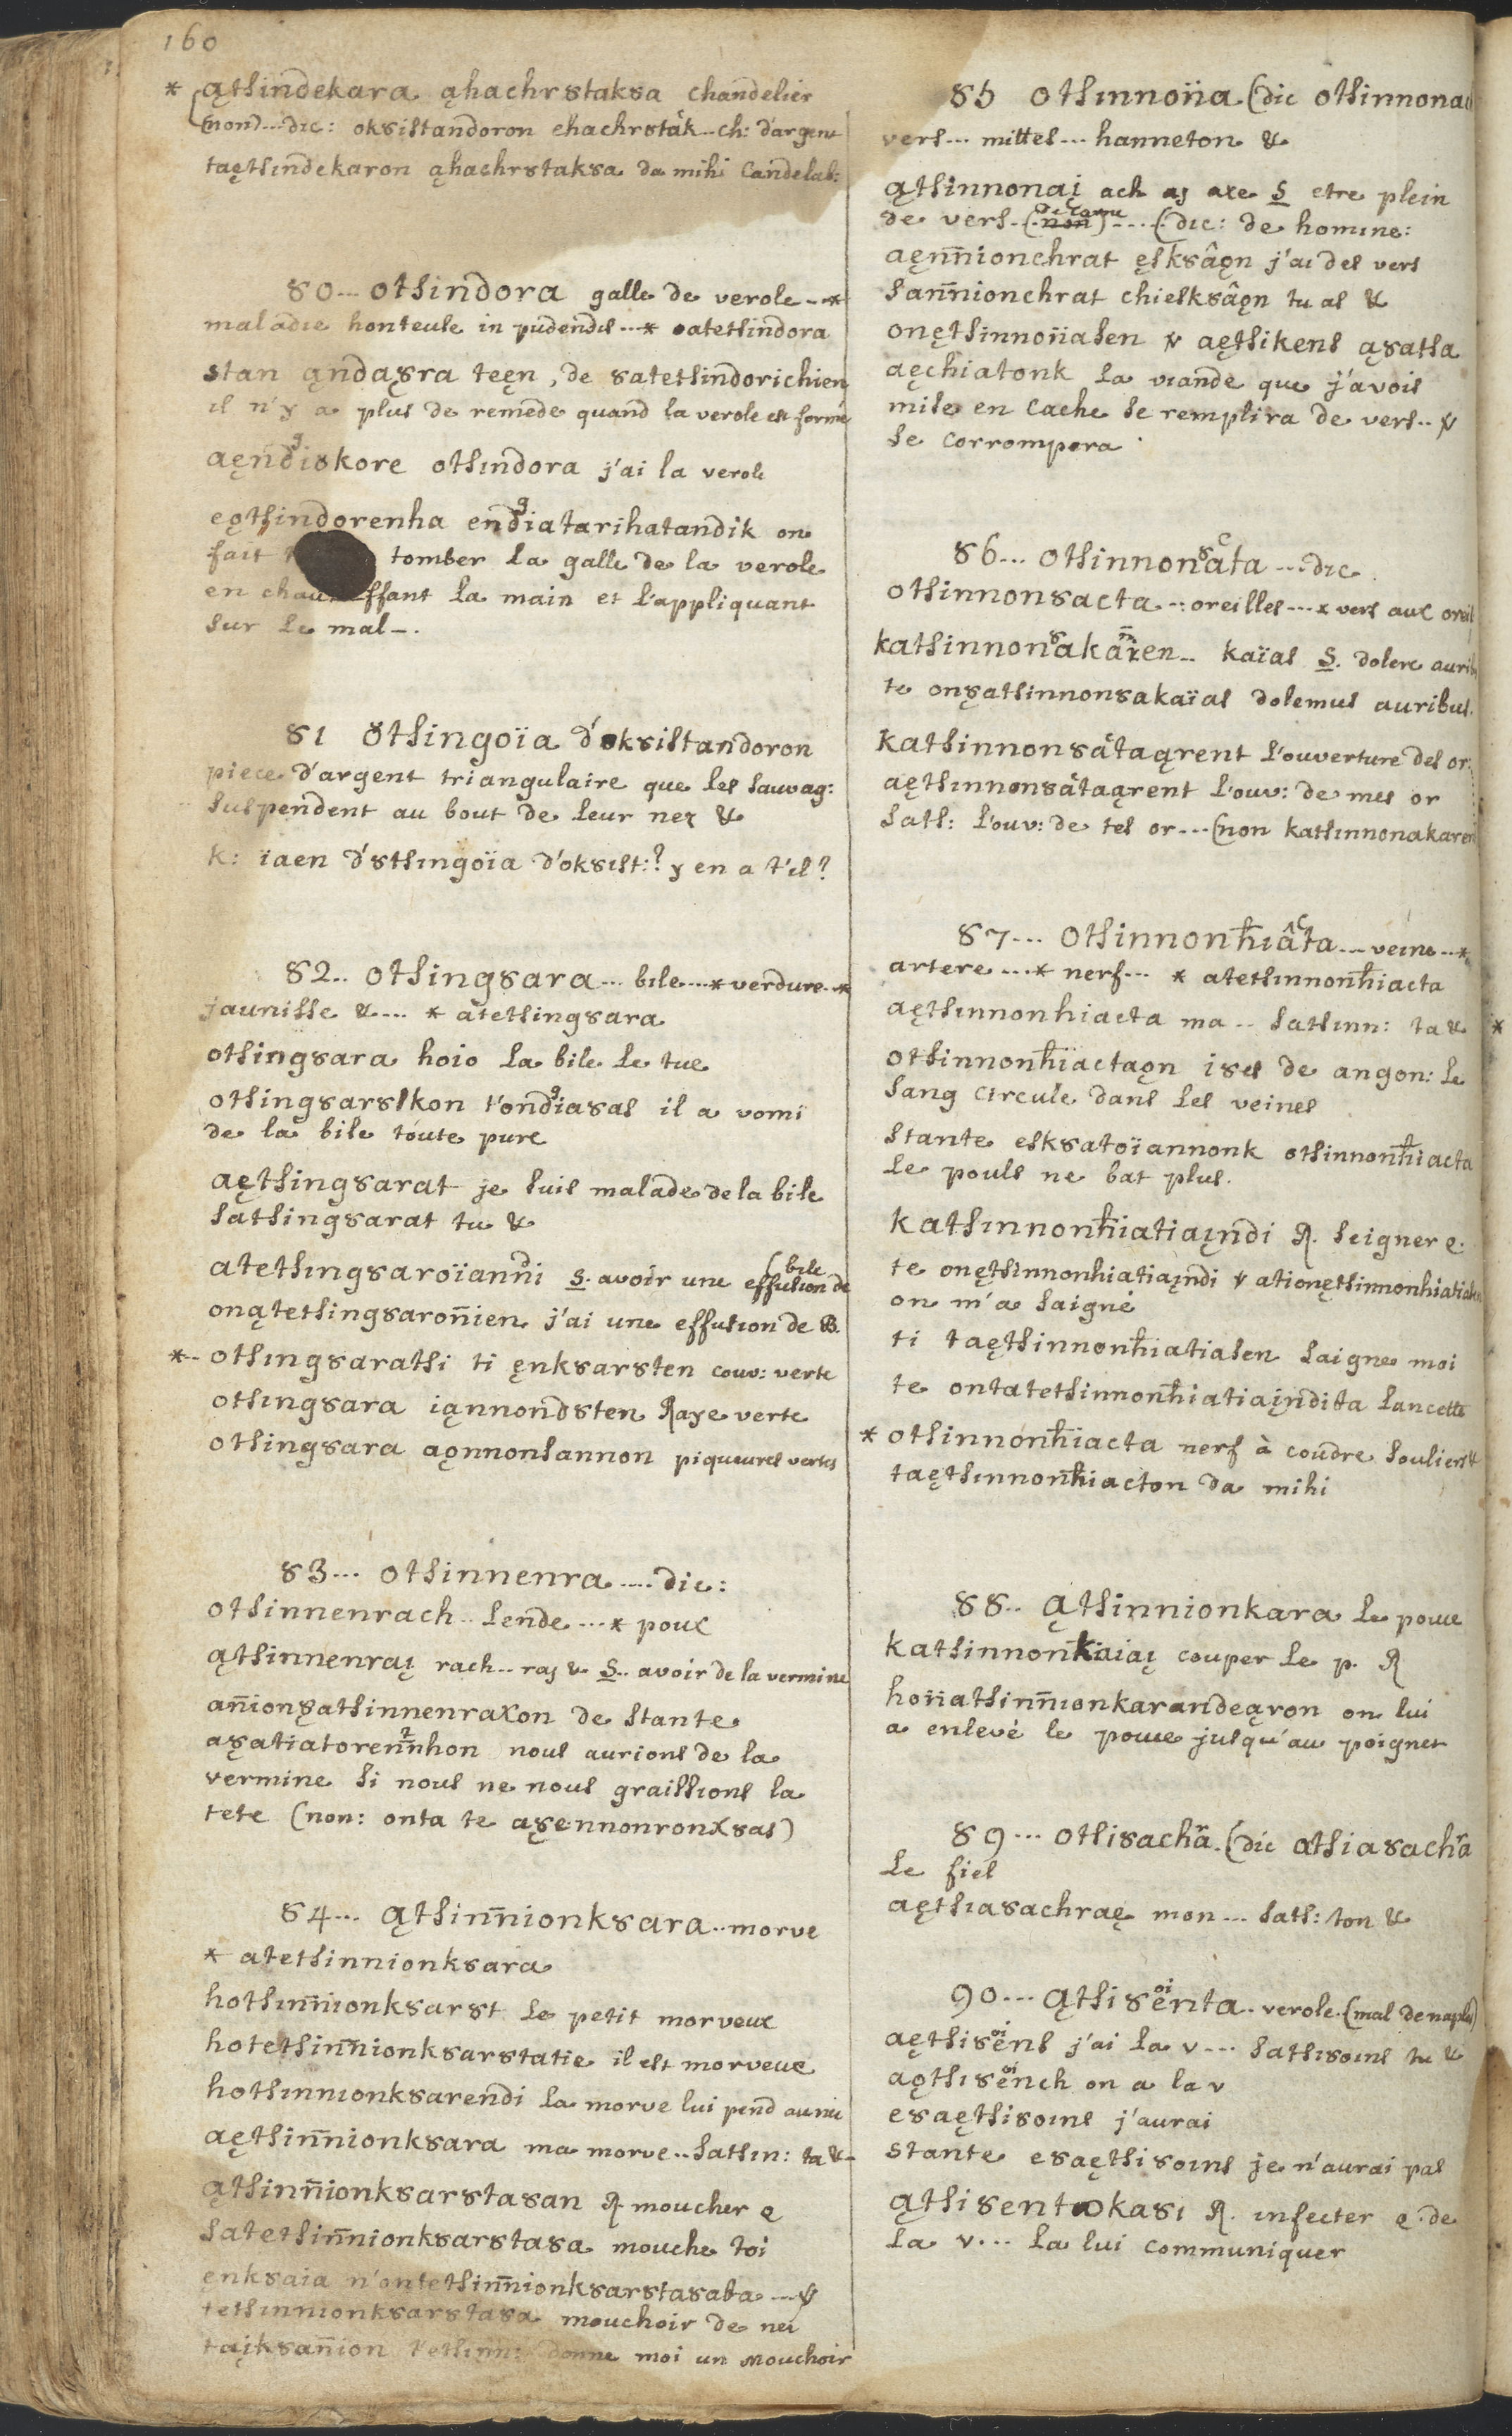 160
* ąthindekara ąhachrȣtakȣa chandelier
(non)...dic: okȣistandoron ehachrȣtak..ch: d'argent
taęthindekaron ąhachrȣtakȣa da mihi Candelab:
80... othindora galle de verole..*
maladie honteuse in pudendis...* oatethindora
stan ąndaȣra teęn, de ȣatethindorichien
il n'y a plus de remede quand la verole est formé
aęndiokore othindora j'ai la verole
eǫthindorenha endiatarihatandik on
fait tomber la galle de la verole
en chauffant la main et l'appliquant
sur le mal-.
81 othingoïa d'okȣistandoron
piece d'argent triangulaire que les sauvag:
suspendent au bout de leur nez &
k: ïaen d'ȣthingoïa d'okȣist:? y en a t'il?
82.. othingȣara... bile...* verdure..*
jaunisse &.... * atethingȣara
othingȣara hoio la bile le tue
othingȣarȣskon t'ondiaȣas il a vomi
de la bile toute pure
aęthingȣarat je suis malade de la bile
sathingȣarat tu &
atethingȣaroïanndi S. avoir une effusion de
(bile
onątethingȣaronien j'ai une effusion de B.
*.. othingȣarathi ti ęnkȣarȣten couv: verte
othingȣara iąnnondȣten Raye verte
othingȣara aǫnnonsannon piqueures vertes
83... othinnenra..... dic:
othinnenrach.. lende...* poux
ąthinnenraį rach.. raj & S.. avoir de la vermine
anionȣathinnenraxon de stante
aȣatiatorennhon nous aurions de la
vermine si nous ne nous graissions la
tete (non: onta te aȣennonronxȣas)
84... ąthinnionkȣara..morve
* atethinnionkȣara
hothinnionkȣarȣt le petit morveux
hotethinnionkȣarȣtatie il est morveux
hothinnionkȣarendi la morve lui pend au nez
aęthinnionkȣara ma morve..sathin: ta &-
ąthinnionkȣarȣtaȣan R moucher q
satethinnionkȣarȣtaȣa mouche toi
ęnkȣaia n'ontethinnionkȣarȣtaȣata...v
tethinnionkȣarȣtaȣa mouchoir de nez
taįkȣanion t'ethinn: donne moi un mouchoir
85 othinnona (dic othinnonach
vers... mittes... hanneton &
ąthinnonaį ach aj axe S etre plein
de vers..(non) de Carne ....(dic: de homine:
aęnnionchrat ęskȣâǫn j'ai des vers
sannionchrat chieskȣâǫn tu as &
onęthinnonasen v aęthikens ąȣatha
aęchiatonk la viande que j'avois
mise en Cache se remplira de vers..v
se corrompera
86... othinnonȣata...dic
othinnonȣacta..: oreilles...x vers aux oreil
kathinnonȣakaren.. kaïas S. dolere aurib
te onȣathinnonȣakaïas dolemus auribus.
kathinnonȣataąrent l'ouverture des or:
aęthinnonȣataąrent l'ouv: de mes or
sath: l'ouv: de tes or...(non kathinnonakaren
87... othinnonhiâta...veine..*
artere...* nerf... * atethinnonhiacta
aęthinnonhiacta ma.. sathinn: ta &
othinnonhiactaǫn iȣes de angon: le
sang circule dans les veines
stante eskȣatoïannonk othinnonhiacta
le pouls ne bat plus.
kathinnonhiatiaįndi R. seigner q.
te onęthinnonhiatiaįndi v ationęthinnonhiatiaken
on m'a saigné
ti taęthinnonhiatiasen saigne moi
te ontatethinnonhiatiaįndita lancette
* othinnonhiacta nerf à coudre souliers &
taęthinnonhiacton da mihi
88.. ąthinnionkara le pouce
kathinnonkaiaį couper le p. R
honathinnionkarandeąron on lui
a enlevé le pouce jusqu'au poignet
89... othiȣachra. (dic othiaȣachra
le fiel
aęthiaȣachraę mon... sath: ton &
90... ąthiȣenta.. verole.(mal de naples)
aęthiȣens j'ai la v... sathiȣoins tu &
aǫthiȣench on a la v
eȣaęthiȣoins j'aurai
stante eȣaęthiȣoins je n'aurai pas
ąthiȣentokaȣi R. infecter q. de
la v... la lui communiquer